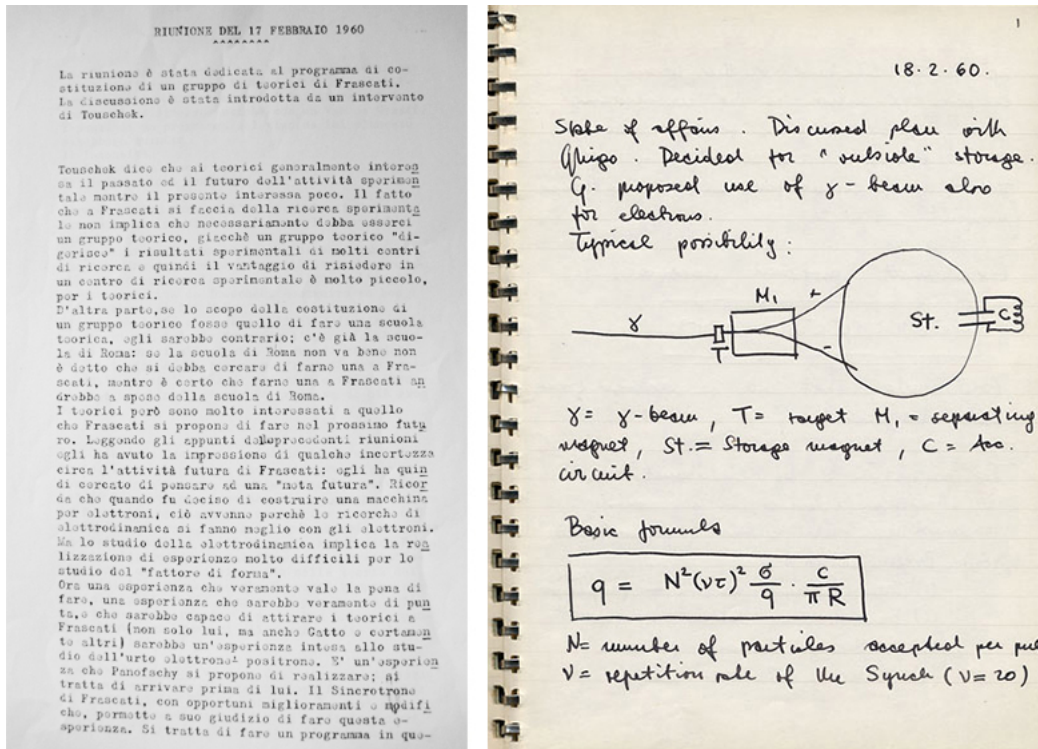 RIUNIONE DEL 17 FEBBRAIO 1960
La riunione è stata dedicata al programma di co-
stituzione di un gruppo di teorici di Frascati.
La discussione è stata introdotta da un intervento
di Touschek.
Touschek dice che ai teorici generalmente interes
sa il passato ed il futuro dell'attività sperimen
tale mentre il presente interessa poco. Il fatto
che a Frascati si faccia della ricerca sperimenta
le non implica che necessariamente debba esserci
un gruppo teorico, giacchè un gruppo teorico "di-
gerisce" i risultati sperimentali di molti centri
di ricerca e quindi il vantaggio di risiedere in
un centro di ricerca sperimentale è molto piccolo,
per i teorici.
D'altra parte,se lo scopo della costituzione di
un gruppo teorico fosse quello di fare una scuola
teorica, egli sarebbe contrario; c'è già la scuo-
la di Roma: se la scuola di Roma non va bene non
è detto che si debba cercare di farne una a Fra-
scati, mentre è certo che farne una a Frascati an
drebbe a spese della scuola di Roma.
I teorici però sono molto interessati a quello
che Frascati si propone di fare nel prossimo futu
ro. Leggendo gli appunti precedenti riunioni
egli ha avuto la impressione di qualche incertezza
circa l'attività futura di Frascati: egli ha quin
di cercato di pensare ad una "meta futura". Ricor
da che quando fu deciso di costruire una macchina
per elettroni, ciò avvenne perchè le ricerche di
elettrodinamica si fanno meglio con gli elettroni.
Ma lo studio della elettrodinamica implica la rea
lizzazione di esperienze molto difficili per lo
studio del "fattore di forma".
Ora una esperienza che veramente vale la pena di
fare, una esperienza che sarebbe veramente di pun
ta,e che sarebbe capace di attirare i teorici a
Frascati (non solo lui, ma anche Gatto e certamen
te altri) sarebbe un'esperienza intesa allo stu-
dio dell'urto elettrone- positrone. E' un'esperien
za che Panofschy si propone di realizzare; si
tratta di arrivare prima di lui. Il Sincrotrone
di Frascati, con opportuni miglioramenti o modifi
che, permette a suo giudizio di fare questa e-
sperienza. Si tratta di fare un programma in que-
1
18.2.60.
State of affairs. Discussed plan with
Ghigo. Decided for "outside" storage.
G. proposed use of γ-beam also
for electrons.
Typical possibility:
γ
T
M₁
+
-
St.
C
γ = γ-beam, T = target M₁ = separating
magnet, St. = Storage magnet, C = Acc.
circuit.
Basic formula
q = N²(ντ)² σ/q · c/πR
N = number of particles accepted per pul
ν = repetition rate of the Synch (ν=20)